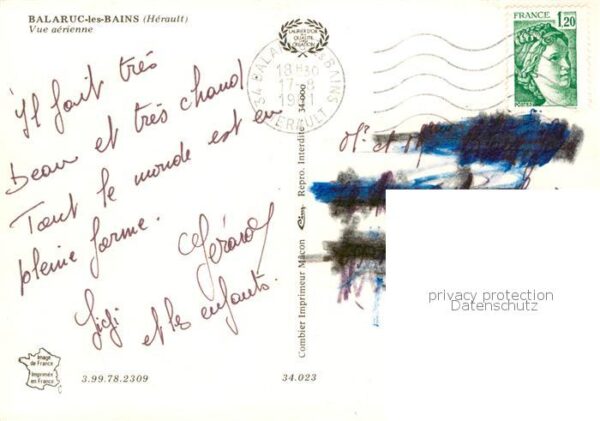 BALARUC-les-BAINS (Hérault)
Vue aérienne
Il fait très
beau et très chaud
Tout le monde est en
pleine forme.
Gérard
Gigi
et les enfants.
Image
de France
Imprimée
en France
3.99.78.2309
34.023
Combier Imprimeur Mâcon Repro. Interdite 34-000
LAURIER D'OR
DE LA
QUALITE
DE LA
CREATION
34 BALARUC BAINS
18 H 30
17-8
1981
HERAULT
FRANCE
1,20
POSTES
Mr et
privacy protection
Datenschutz